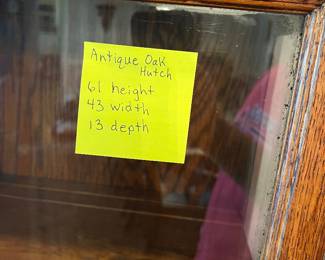 Antique Oak
Hutch
61 height
43 width
13 depth